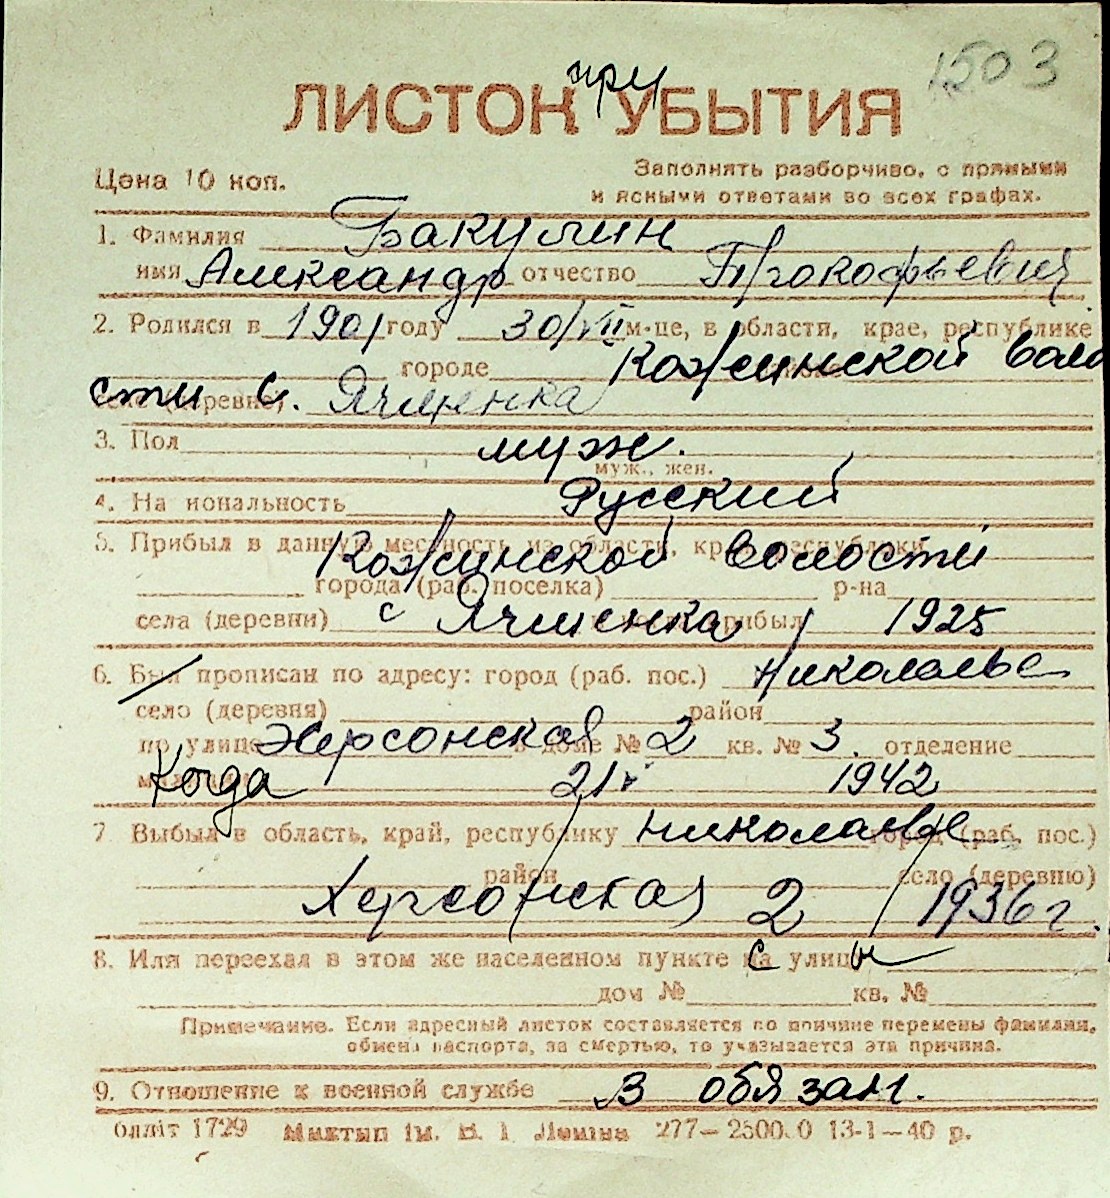 1503
при
ЛИСТОК УБЫТИЯ
Цена 10 коп.
Заполнять разборчиво, с прямыми
и ясными ответами во всех графах.
1. Фамилия Бакулин
имя Александр отчество Прокофьевич
2. Родился в 1901 году 30/VII м-це, в области, крае, республике
городе Кожинской воло
сти с. Ячменка
3. Пол муж.
муж., жен.
4. На иональность Русский
5. Прибыл в данную местность из области, края, республики
Кожинской волости
города (раб. поселка) р-на
села (деревни) с Ячменка прибыл 1925
6. Был прописан по адресу: город (раб. пос.) Николаеве
село (деревня) район
по улице Херсонская в доме № 2 кв. № 3. отделение
Когда 21 1942
7. Выбыл в область, край, республику Николаеве город (раб. пос.)
район село (деревню)
Херсонская 2 1936 г.
8. Или переехал в этом же населенном пункте с улицы
дом № кв. №
Примечание. Если адресный листок составляется по причине перемены фамилии,
обмена паспорта, за смертью, то указывается эта причина.
9. Отношение к военной службе В обязан.
блліт 1729 Миктип ім. В. І. Леніна 277—2500.0 13-1—40 р.